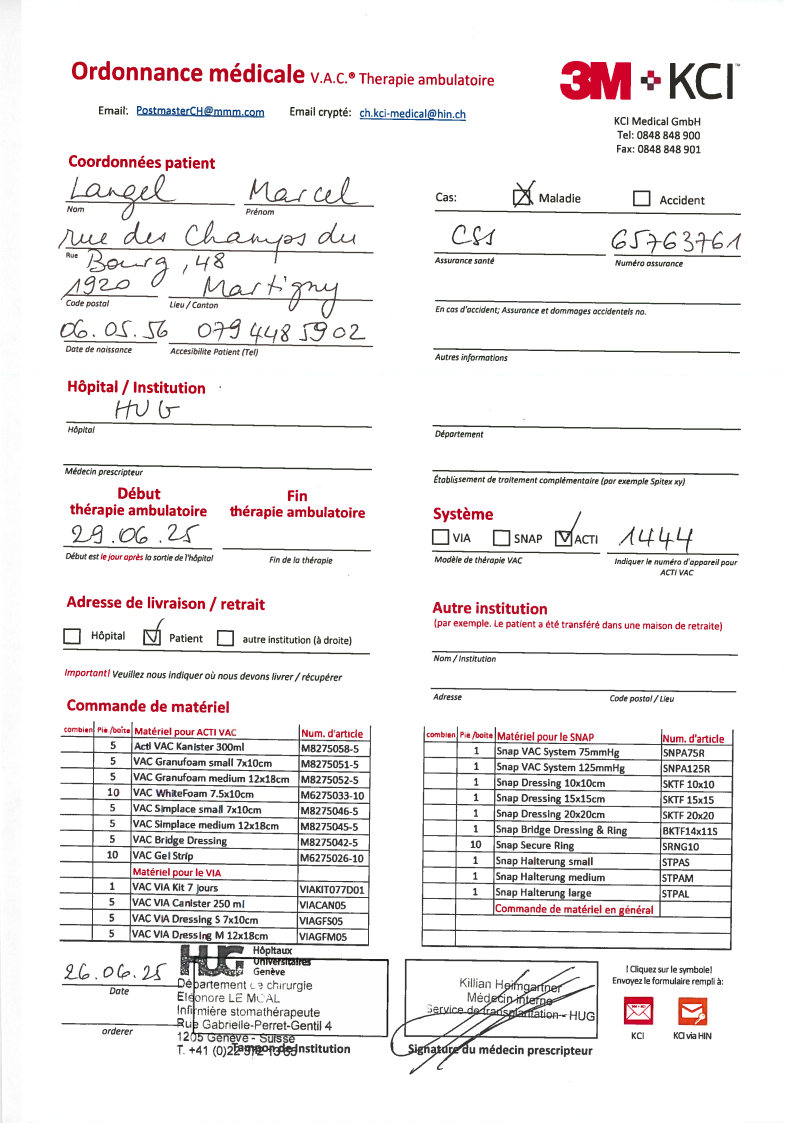 Ordonnance médicale V.A.C.® Therapie ambulatoire
3M+KCI™
Email: PostmasterCH@mmm.com Email crypté: ch.kci-medical@hin.ch
KCI Medical GmbH
Tel: 0848 848 900
Fax: 0848 848 901
Coordonnées patient
Langel Marcel
Nom Prénom
rue des Champs du
Rue Bourg, 48
1920 Martigny
Code postal Lieu / Canton
06.05.56 079 448 59 02
Date de naissance Accesibilite Patient (Tel)
Cas: Maladie Accident
CSS 65763761
Assurance santé Numéro assurance
En cas d'accident; Assurance et dommages accidentels no.
Autres informations
Hôpital / Institution
HUG
Hôpital
Médecin prescripteur
Département
Établissement de traitement complémentaire (par exemple Spitex xy)
Début
thérapie ambulatoire
Fin
thérapie ambulatoire
29.06.25
Début est le jour après la sortie de l'hôpital Fin de la thérapie
Système
VIA SNAP ACTI 1444
Modèle de thérapie VAC Indiquer le numéro d'appareil pour
ACTI VAC
Adresse de livraison / retrait
Hôpital Patient autre institution (à droite)
Important! Veuillez nous indiquer où nous devons livrer / récupérer
Autre institution
(par exemple. Le patient a été transféré dans une maison de retraite)
Nom / Institution
Adresse Code postal / Lieu
Commande de matériel
combien Pie /boite Matériel pour ACTI VAC Num. d'article
5 Acti VAC Kanister 300ml M8275058-5
5 VAC Granufoam small 7x10cm M8275051-5
5 VAC Granufoam medium 12x18cm M8275052-5
10 VAC WhiteFoam 7.5x10cm M6275033-10
5 VAC Simplace small 7x10cm M8275046-5
5 VAC Simplace medium 12x18cm M8275045-5
5 VAC Bridge Dressing M8275042-5
10 VAC Gel Strip M6275026-10
Matériel pour le VIA
1 VAC VIA Kit 7 jours VIAKIT077D01
5 VAC VIA Canister 250 ml VIACAN05
5 VAC VIA Dressing S 7x10cm VIAGFS05
5 VAC VIA Dressing M 12x18cm VIAGFM05
combien Pie /boite Matériel pour le SNAP Num. d'article
1 Snap VAC System 75mmHg SNPA75R
1 Snap VAC System 125mmHg SNPA125R
1 Snap Dressing 10x10cm SKTF 10x10
1 Snap Dressing 15x15cm SKTF 15x15
1 Snap Dressing 20x20cm SKTF 20x20
1 Snap Bridge Dressing & Ring BKTF14x11S
10 Snap Secure Ring SRNG10
1 Snap Halterung small STPAS
1 Snap Halterung medium STPAM
1 Snap Halterung large STPAL
Commande de matériel en général
26.06.25
Date
orderer
HUG Hôpitaux
Universitaires
Genève
Département de chirurgie
Eléonore LE
Infirmière stomathérapeute
Rue Gabrielle-Perret-Gentil 4
1205 Genève - Suisse
T. +41 (0)22
Tampon de Institution
Killian Heimgartner
Médecin interne
Service de transplantation - HUG
Signature du médecin prescripteur
! Cliquez sur le symbole!
Envoyez le formulaire rempli à:
KCI KCI via HIN